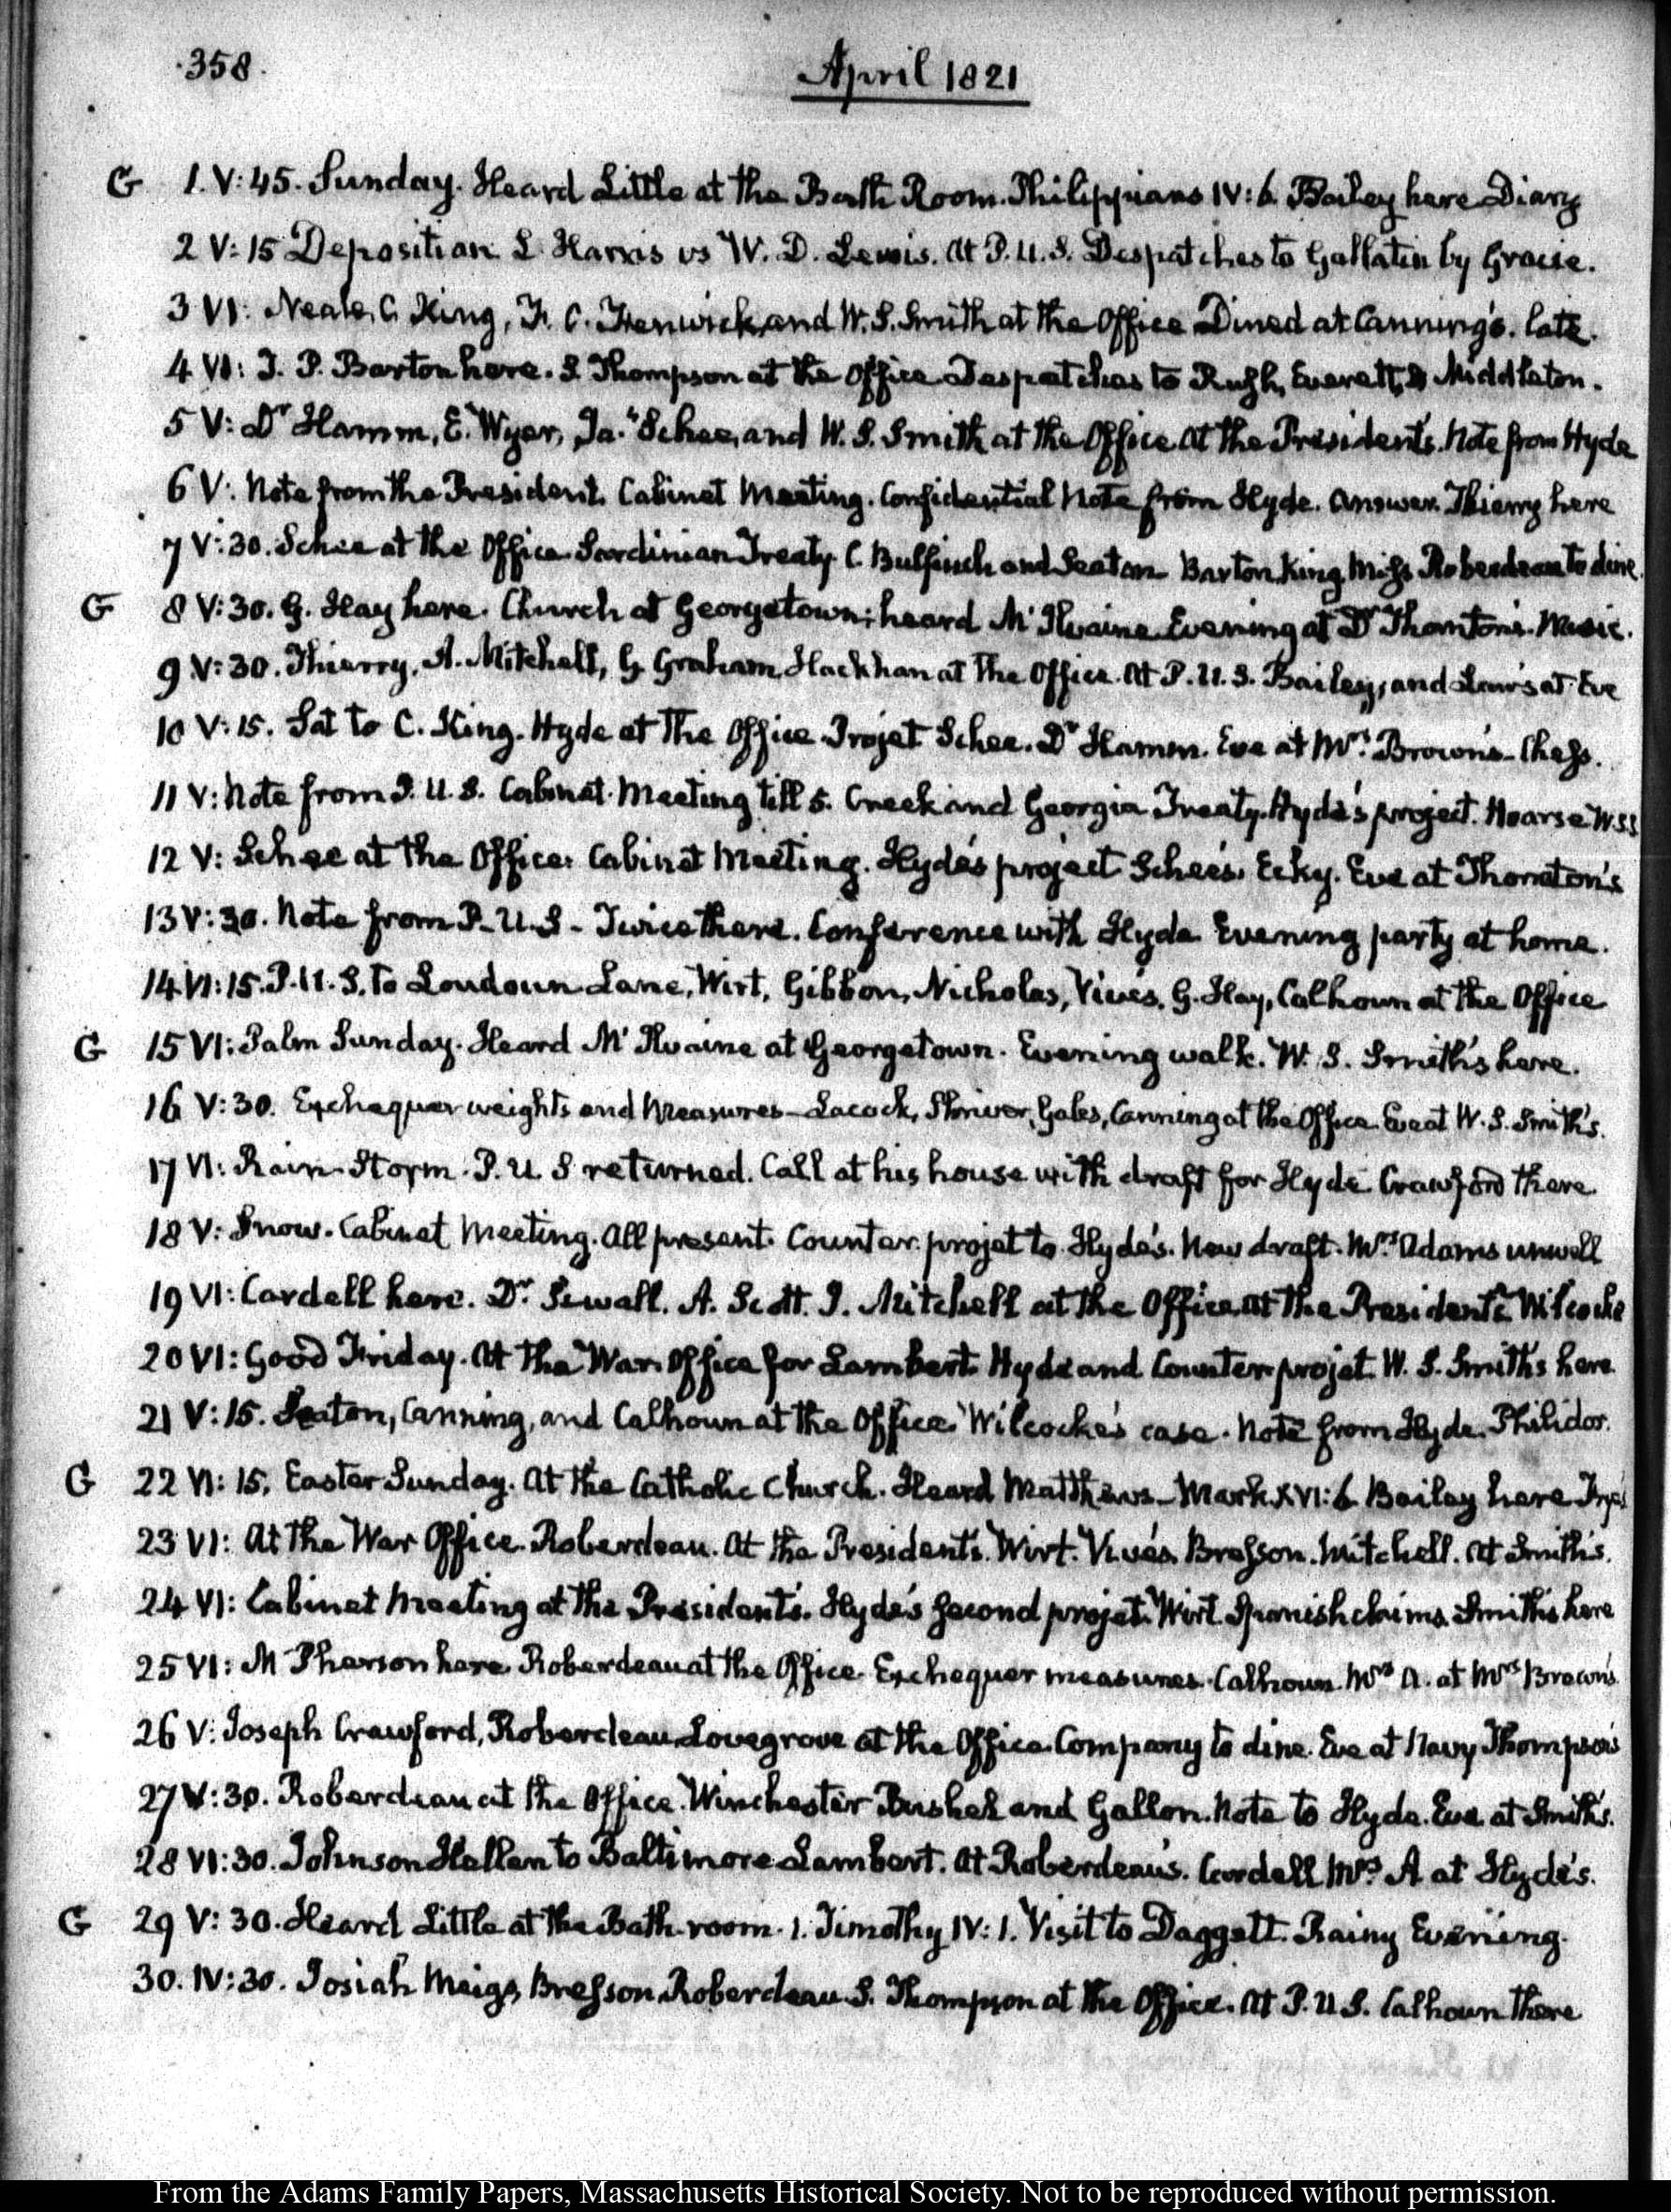 358.
April 1821
G 1. V:45. Sunday. Heard Little at the Bath Room. Philippians IV:6. Bailey here Diary
2 V:15 Deposition L Harris vs W. D. Lewis. At P.U.S. Despatches to Gallatin by Gracie.
3 VI: Neale, C. King, F. C. Fenwick, and W. S. Smith at the Office Dined at Canning's. late.
4 VI: T. P. Barton here. S. Thompson at the Office Despatches to Rush, Everett, & Middleton.
5 V: Dr Hamm, E. Wyer, Ja.s Schee, and W. S. Smith at the Office At the President's. Note from Hyde
6 V: Note from the President. Cabinet Meeting. Confidential Note from Hyde. Answer. Thierry here
7 V:30. Schee at the Office. Sardinian Treaty. C. Bulfinch and Seaton Barton, King, Miss Roberdeau to dine.
G 8 V:30. G. Hay here. Church at Georgetown; heard McIlvaine. Evening at Dr Thornton's. Music.
9 V:30. Thierry, A. Mitchell, G. Graham, at the Office. At P.U.S. Bailey, and Law's at Eve
10 V:15. Sat to C. King. Hyde at the Office Projet Schee. Dr Hamm. Eve at Mrs Brown's. Chess.
11 V: Note from P.U.S. Cabinet Meeting till 5. Creek and Georgia Treaty. Hyde's project. Hoarse W.S.S
12 V: Schee at the Office. Cabinet Meeting. Hyde's project Schee's. Eve at Thornton's
13 V:30. Note from P.U.S. Twice there. Conference with Hyde Evening party at home.
14 VI:15. P.U.S. to Loudoun Lane, Wirt, Gibbon, Nicholas, Vives, G. Hay, Calhoun at the Office
G 15 VI: Palm Sunday. Heard McIlvaine at Georgetown. Evening walk. W. S. Smith's here.
16 V:30. Exchequer weights and Measures—Lacock, Shriver, Gales, Canning at the Office Eve at W. S. Smith's.
17 VI: Rain Storm. P.U.S returned. Call at his house with draft for Hyde Crawford there.
18 V: Snow. Cabinet Meeting. All present. Counter projet to Hyde's. New draft. Mrs Adams unwell
19 VI: Cardell here. Dr Sewall. A. Scott. J. Mitchell at the Office. At the President's Wilcocke
20 VI: Good Friday. At the War Office for Lambert. Hyde and Counter projet. W. S. Smith's here.
21 V:15. Seaton, Canning, and Calhoun at the Office. Wilcocke's case. Note from Hyde. Philidor.
G 22 VI:15. Easter Sunday. At the Catholic Church. Heard Matthews—Mark XVI:6. Bailey here
23 VI: At the War Office. Roberdeau. At the President's. Wirt. Vives. Bresson. Mitchell. At Smith's.
24 VI: Cabinet Meeting at the President's. Hyde's second projet. Wirt. Spanish claims. Smith's here
25 VI: McPherson here Roberdeau at the Office Exchequer measures. Calhoun. Mrs A. at Mrs Brown's
26 V: Joseph Crawford, Roberdeau, Lovegrove at the Office. Company to dine. Eve at Navy Thompson's
27 V:30. Roberdeau at the Office. Winchester Bushel and Gallon. Note to Hyde. Eve at Smith's.
28 VI:30. Johnson Hellen to Baltimore Lambert. At Roberdeau's. Cardell Mrs A at Hyde's.
G 29 V:30. Heard Little at the Bath room. 1. Timothy IV:1. Visit to Daggett. Rainy Evening.
30. IV:30. Josiah Meigs, Bresson, Roberdeau S. Thompson at the Office. At P.U.S. Calhoun there
From the Adams Family Papers, Massachusetts Historical Society. Not to be reproduced without permission.